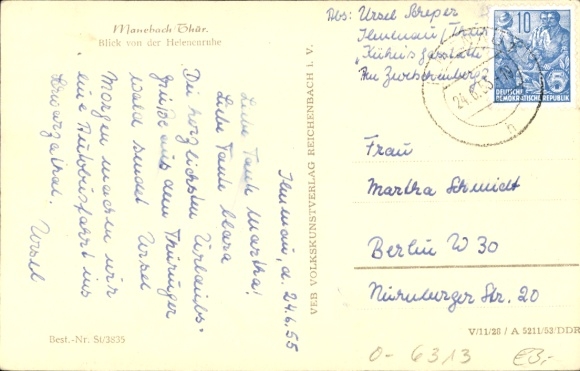 Manebach Thür.
Blick von der Helenenruhe
Ilmenau, d. 24.6.55
Liebe Tante Martha!
Liebe Tante Klara
Die herzlichsten Urlaubs-
grüße aus dem Thüringer
wald sendet Ursel
Morgen machen wir
eine Autobusfahrt ins
Schwarzatal. Ursel
Best.-Nr. St/3835
VEB VOLKSKUNSTVERLAG REICHENBACH I. V.
Abs: Ursel
Ilmenau/Thür
Am
10
DEUTSCHE
DEMOKRATISCHE REPUBLIK
5
24.6.55
Frau
Martha Schmidt
Berlin W 30
Nürnburger Str. 20
V/11/28 / A 5211/53/DDR
0-6313